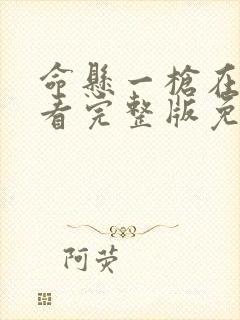 命懸一槍在
看完整版免
阿荧